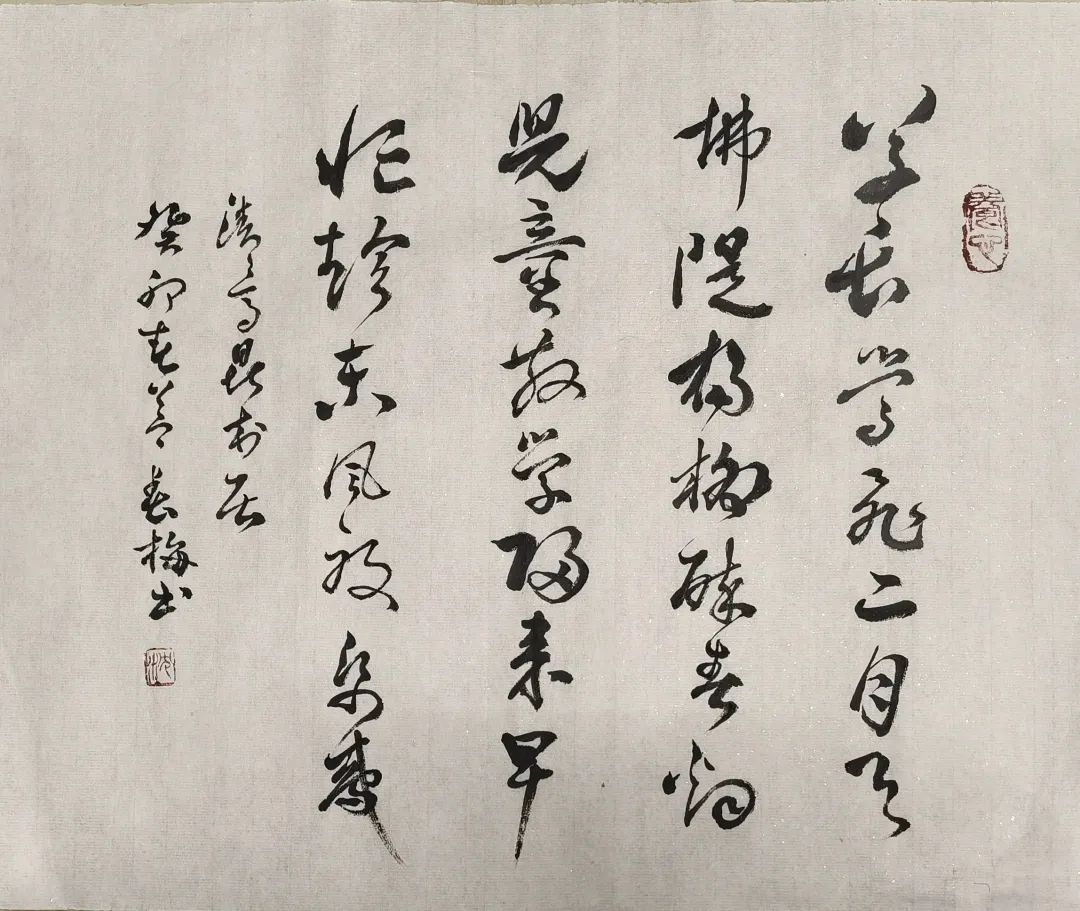 草长莺飞二月天
拂堤杨柳醉春烟
儿童散学归来早
忙趁东风放纸鸢
清高鼎村居
癸卯春兰春梅书